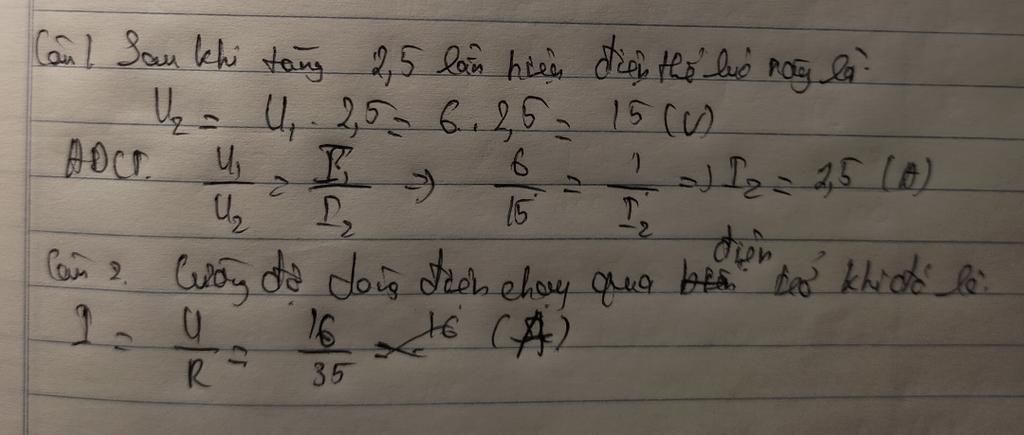 Câu 1 Sau khi tăng 2,5 lần hiệu điện thế lúc này là:
U₂ = U₁ . 2,5 = 6 . 2,5 = 15 (V)
ADCT. U₁/U₂ = I₁/I₂ => 6/15 = 1/I₂ => I₂ = 2,5 (A)
Câu 2. Cường độ dòng điện chạy qua điện trở khi đó là:
I = U/R = 16/35 = 16 (A)